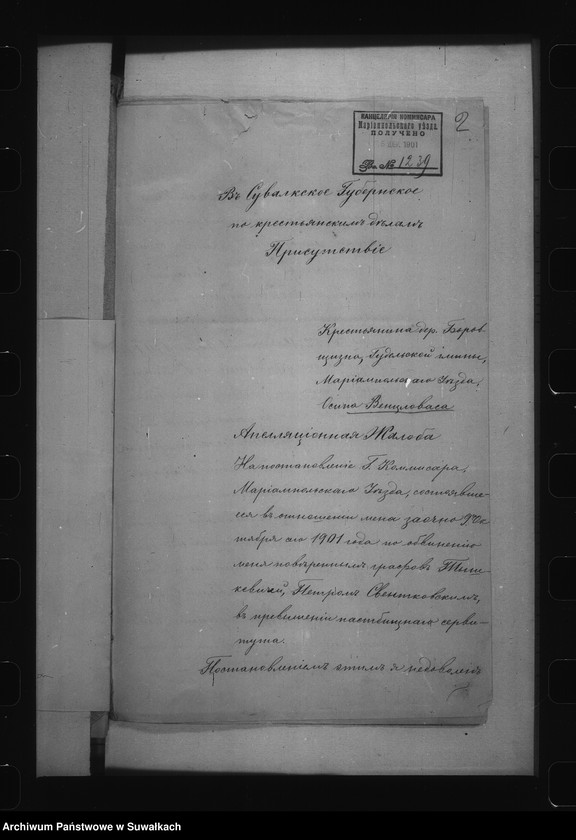 КАНЦЕЛЯРІЯ КОМИССАРА
Маріампольскаго уѣзда.
ПОЛУЧЕНО
1901
Вх. № 1239
2
Въ Сувалкское Губернское
по крестьянскимъ дѣламъ
Присутствіе
Крестьянина дер. Боров
щизна, Гудельской гмины,
Маріампольскаго Уѣзда,
Осипа Венцловаса
Апелляціонная Жалоба
На постановленіе Г. Коммисара,
Маріампольскаго Уѣзда, состоявше-
еся въ отношеніи меня заочно 9 Ок
тября сего 1901 года по обвиненію
меня повѣреннымъ графовъ Тыш
кевичей, Петромъ Свентковскимъ,
въ превышеніи пастбищнаго серви-
тута.
Постановленіемъ этимъ я недоволенъ
Archiwum Państwowe w Suwałkach